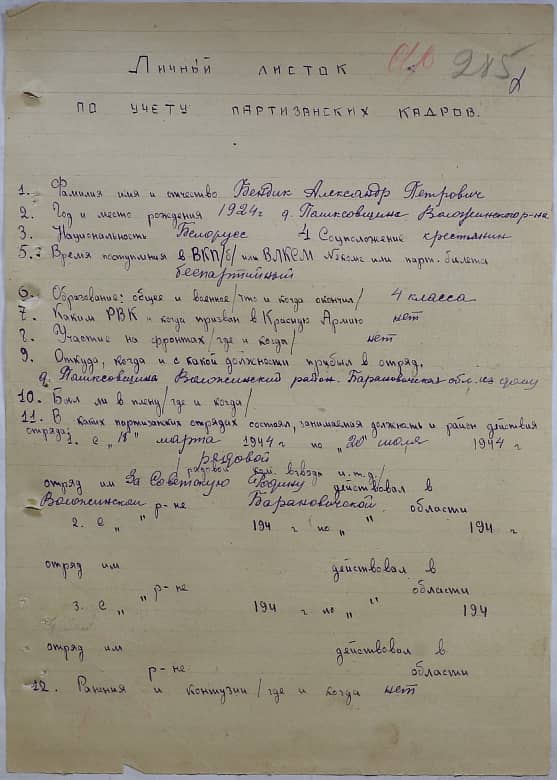 285
Личный листок
по учету партизанских кадров.
1. Фамилия имя и отчество Бендик Александр Петрович
2. Год и место рождения 1924г д. Пашковщина Воложинского р-на
3. Национальность Белорус 4 Соцположение крестьянин
5. Время поступления в ВКП/б/ или ВЛКСМ №комс или парт. билета
беспартийный
6. Образование: общее и военное /что и когда окончил/ 4 класса
7. Каким РВК и когда призван в Красную Армию нет
8. Участие на фронтах /где и когда/ нет
9. Откуда, когда и с какой должности прибыл в отряд.
д. Пашковщина Воложинский район. Барановичская обл. из дому
10. Был ли в плену /где и когда/
11. В каких партизанских отрядах состоял, занимаемая должность и район действия
отряда: 1. С „18" марта 1944 г по „20" июля 1944 г
рядовой
рядовой ком. взвода и.т.д/
отряд им За Советскую Родину действовал в
Воложинском р-не Барановичской области
2. С „ " 194 г по „ " 194 г
отряд им действовал в
р-не области
3. С „ " 194 г по „ " 194
отряд им действовал в
р-не области
12. Ранения и контузии /где и когда нет